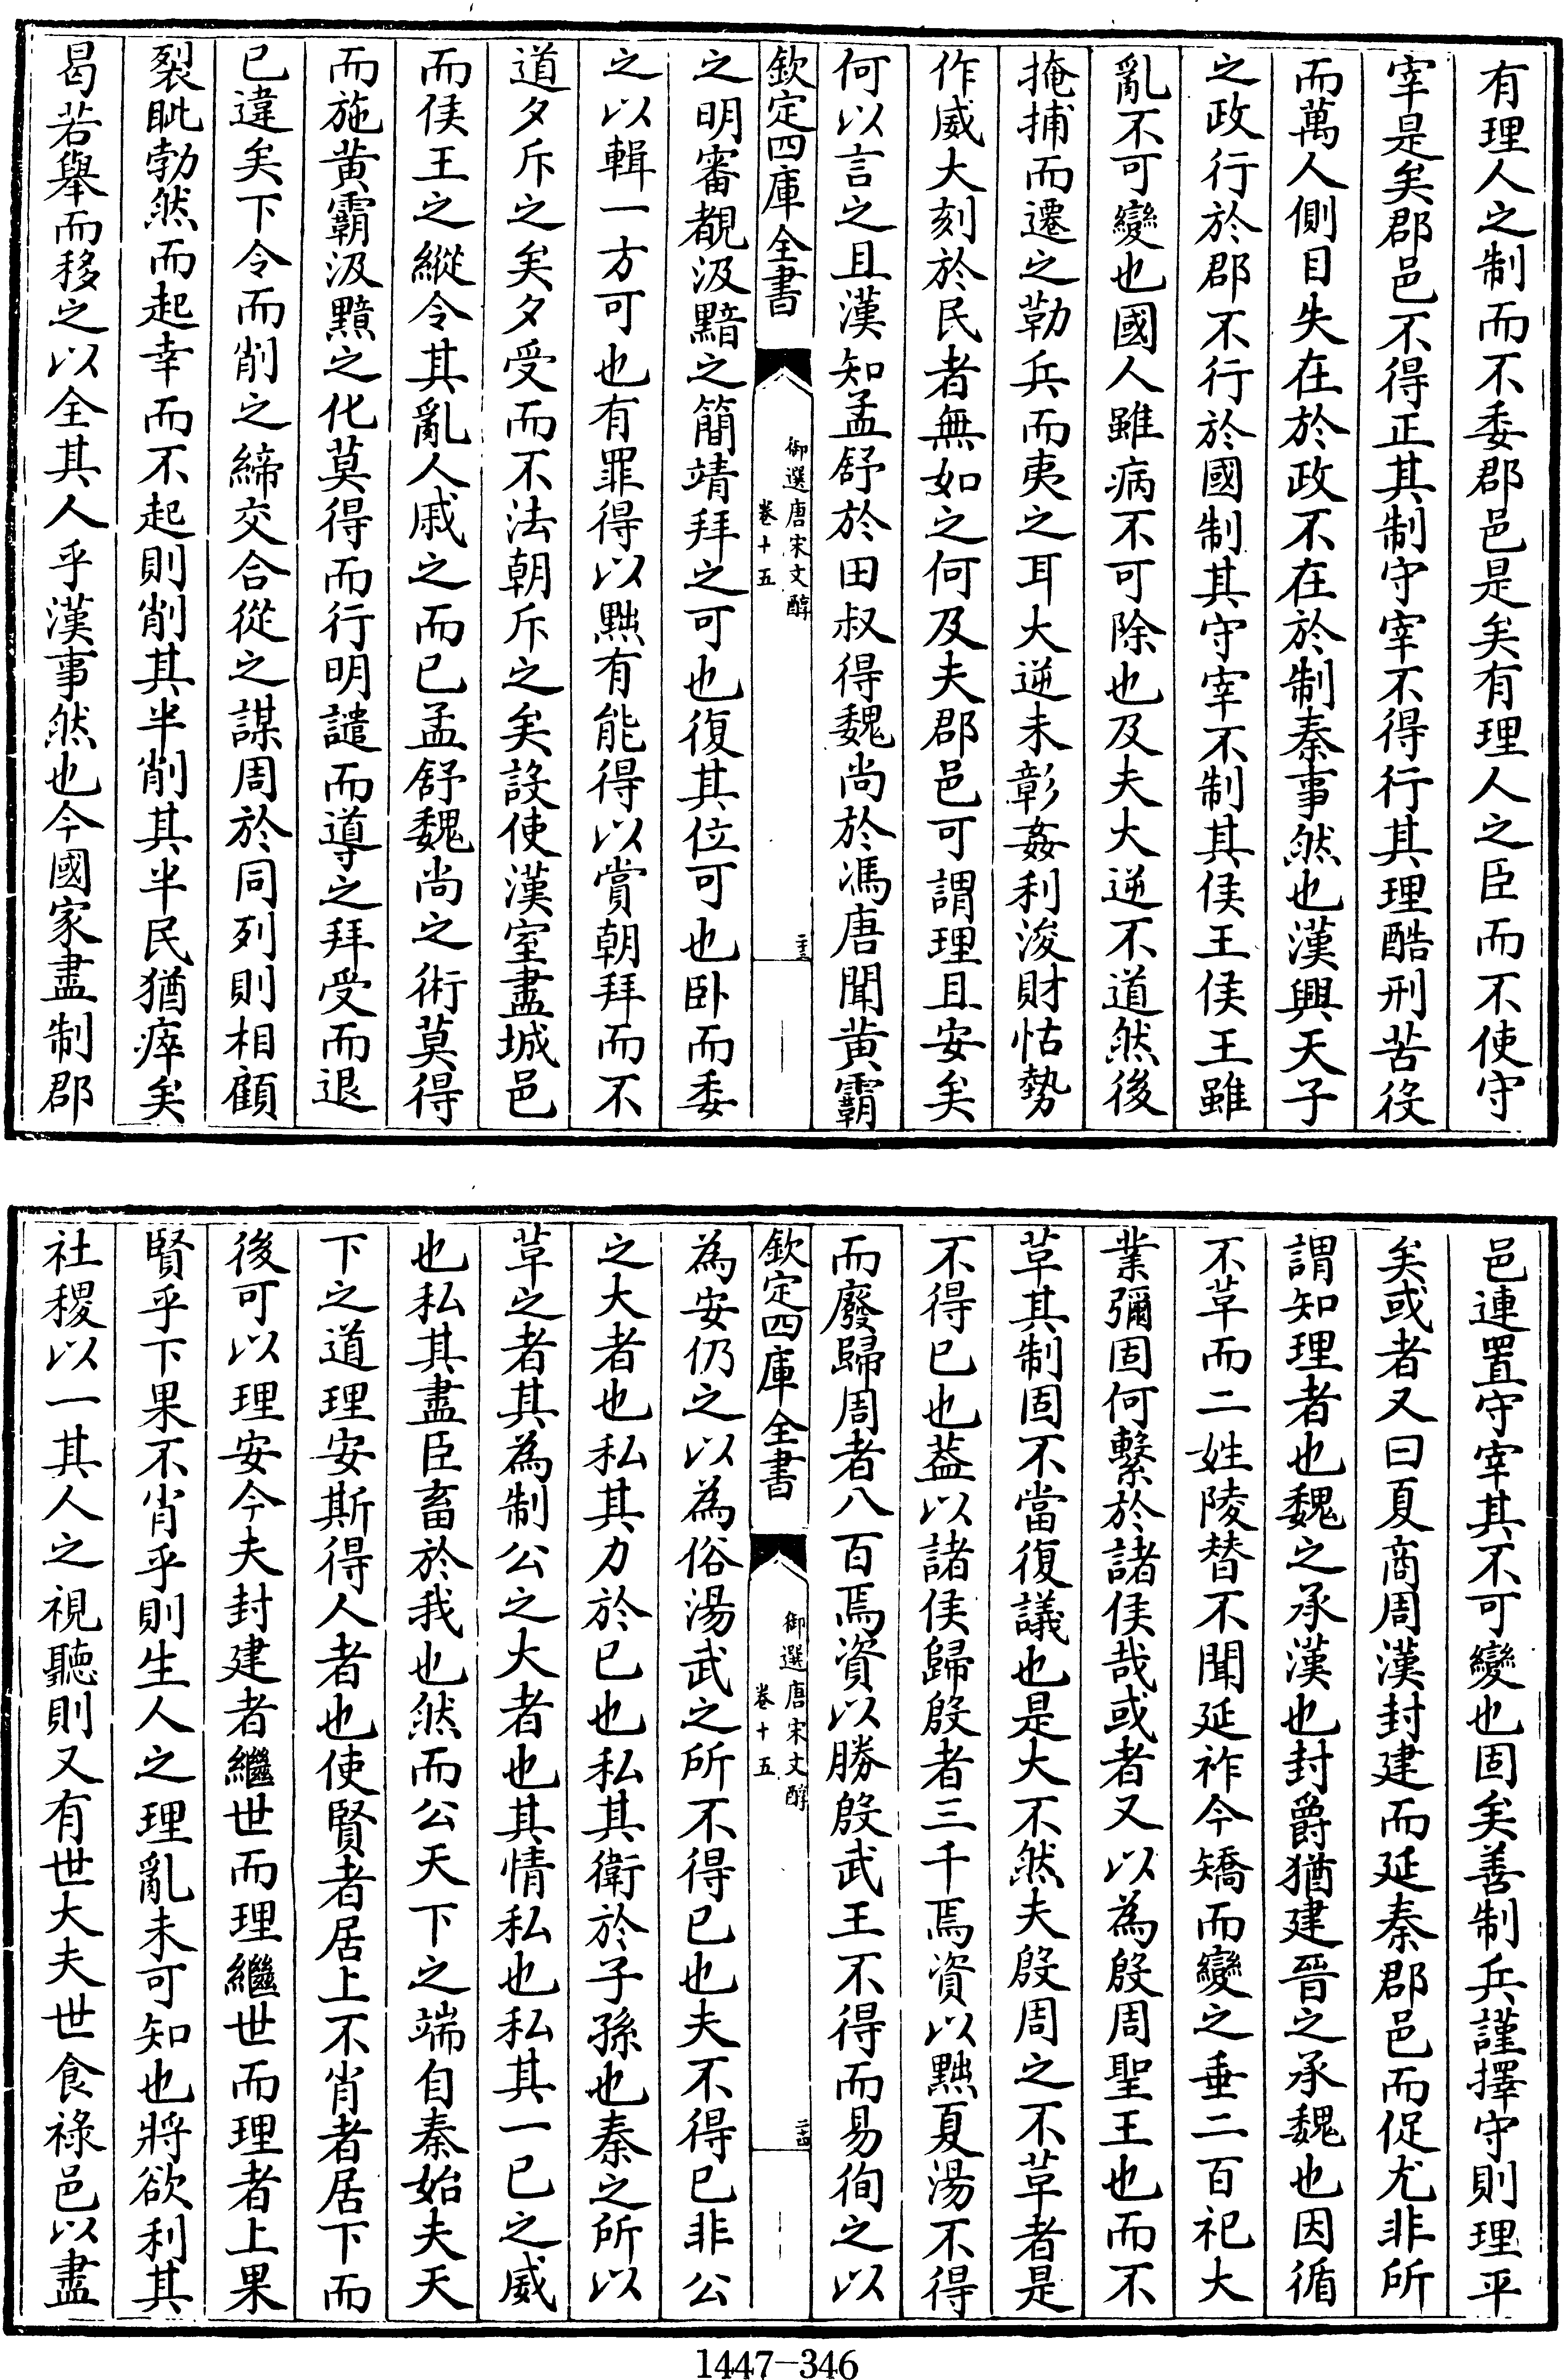 有理人之制而不委郡邑是矣有理人之臣而不使守
宰是矣郡邑不得正其制守宰不得行其理酷刑苦役
而萬人側目失在於政不在於制秦事然也漢興天子
之政行於郡不行於國制其守宰不制其侯王侯王雖
亂不可變也國人雖病不可除也及夫大逆不道然後
掩捕而遷之勒兵而夷之耳大逆未彰姦利浚財怙勢
作威大刻於民者無如之何及夫郡邑可謂理且安矣
何以言之且漢知孟舒於田叔得魏尚於馮唐聞黄霸
欽定四庫全書
御選唐宋文醇
卷十五
二三
之明審覩汲黯之簡靖拜之可也復其位可也卧而委
之以輯一方可也有罪得以黜有能得以賞朝拜而不
道夕斥之矣夕受而不法朝斥之矣設使漢室盡城邑
而侯王之縱令其亂人戚之而已孟舒魏尚之術莫得
而施黄霸汲黯之化莫得而行明譴而導之拜受而退
已違矣下令而削之締交合從之謀周於同列則相顧
裂眦勃然而起幸而不起則削其半削其半民猶瘁矣
曷若舉而移之以全其人乎漢事然也今國家盡制郡
邑連置守宰其不可變也固矣善制兵謹擇守則理平
矣或者又曰夏商周漢封建而延秦郡邑而促尤非所
謂知理者也魏之承漢也封爵猶建晉之承魏也因循
不革而二姓陵替不聞延祚今矯而變之垂二百祀大
業彌固何繫於諸侯哉或者又以為殷周聖王也而不
革其制固不當復議也是大不然夫殷周之不革者是
不得已也葢以諸侯歸殷者三千焉資以黜夏湯不得
而廢歸周者八百焉資以勝殷武王不得而易徇之以
欽定四庫全書
御選唐宋文醇
卷十五
二四
為安仍之以為俗湯武之所不得已也夫不得已非公
之大者也私其力於已也私其衛於子孫也秦之所以
革之者其為制公之大者也其情私也私其一已之威
也私其盡臣畜於我也然而公天下之端自秦始夫天
下之道理安斯得人者也使賢者居上不肖者居下而
後可以理安今夫封建者繼世而理繼世而理者上果
賢乎下果不肖乎則生人之理亂未可知也將欲利其
社稷以一其人之視聽則又有世大夫世食祿邑以盡
1447-346